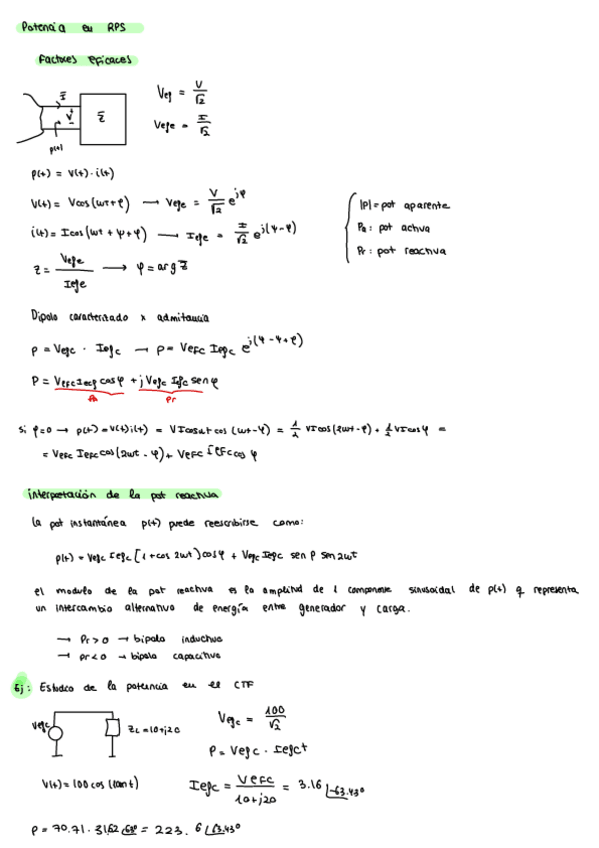 Potencia en RPS
Factores eficaces
Vef = V/√2
Vefe = I/√2
I
V
Z
p(t)
p(t) = v(t)·i(t)
V(t) = Vcos(wt+φ) → Vefe = V/√2 e^jφ
i(t) = Icos(wt+ψ+φ) → Iefe = I/√2 e^j(ψ-φ)
Z = Vefe/Iefe → φ = arg Z
|P| = pot aparente
Pa : pot activa
Pr : pot reactiva
Dipolo caracterizado x admitancia
P = Vefc · Iefc → P = VEFC IEFC e^j(φ-ψ+φ)
P = VEFC IEFC cos φ + j Vefc Iefc sen φ
Pa Pr
si φ=0 → p(t) = v(t)i(t) = VI cos wt cos(wt-φ) = 1/2 VI cos(2wt-φ) + 1/2 VI cos φ =
= VEFC IEFC cos(2wt-φ) + VEFC IEFC cos φ
interpretación de la pot reactiva
la pot instantánea p(t) puede reescribirse como:
p(t) = Vefc Iefc [1+cos 2wt] cos φ + Vefc Iefc sen φ sen 2wt
el modulo de la pot reactiva es la amplitud de 1 componente sinusoidal de p(t) q representa
un intercambio alternativo de energía entre generador y carga.
→ Pr>0 → bipolo inductivo
→ pr<0 → bipolo capacitivo
Ej: Estudio de la potencia en el CTF
Vefc
ZL=10+j20
Vefc = 100/√2
P = Vefc · Iefc
V(t) = 100 cos(
Iefc = VEFC/10+j20 = 3.16 |-63.43º
P = 70.71 · 3.162 |63º = 223.6 |63.43º